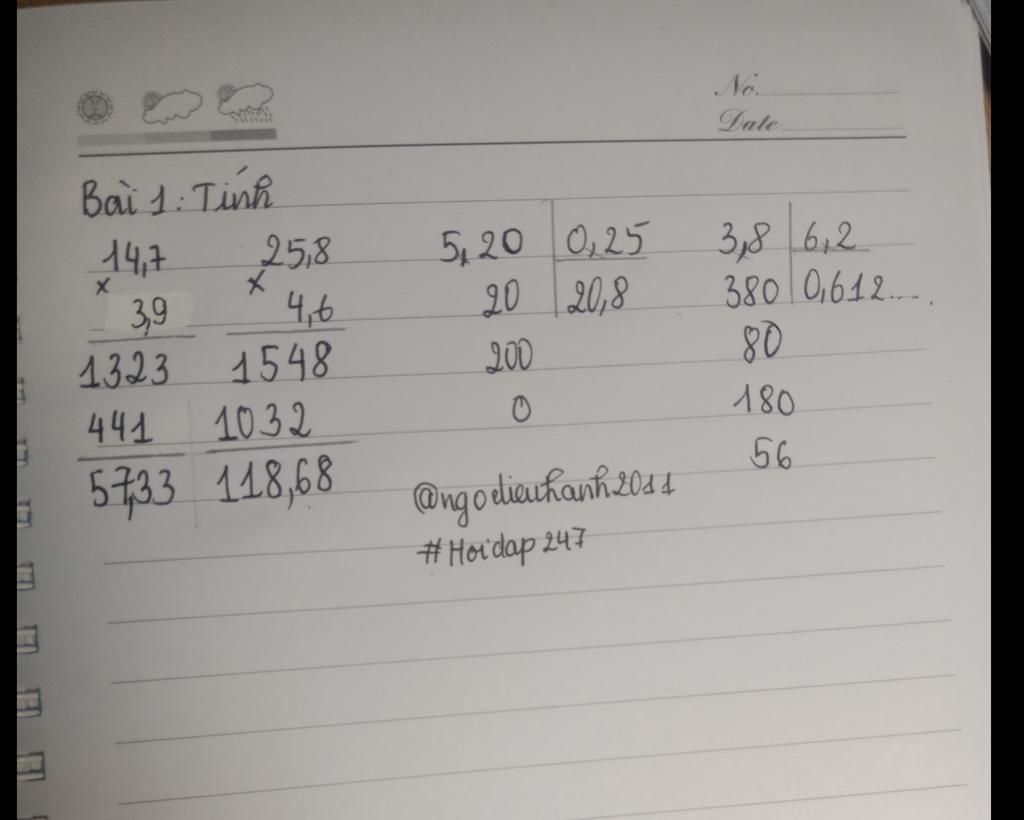 No.
Date
Bài 1: Tính
14,7 25,8 5,20 0,25 3,8 6,2
x x
3,9 4,6 20 20,8 380 0,612....
1323 1548 200 80
441 1032 0 180
57,33 118,68 56
@ngodieuhanh2011
#Hoidap247